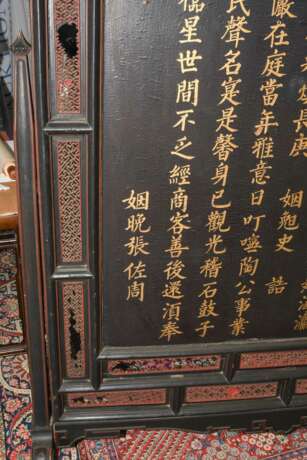 長庚 姻勉史 誥
嚴在庭當年雅意日叮嚀陶公事業
民聲名寔是馨身已觀光稽石鼓子
星世間不乏經商客善後還湏奉
姻晚張佐周